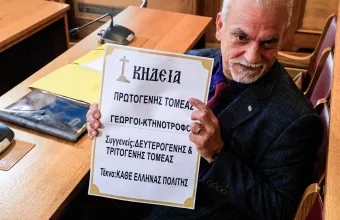 ΚΗΔΕΙΑ
ΠΡΩΤΟΓΕΝΗΣ ΤΟΜΕΑΣ
ΓΕΩΡΓΟΙ-ΚΤΗΝΟΤΡΟΦΟΙ
Συγγενείς:ΔΕΥΤΕΡΟΓΕΝΗΣ &
ΤΡΙΤΟΓΕΝΗΣ ΤΟΜΕΑΣ
Τέκνα:ΚΑΘΕ ΕΛΛΗΝΑΣ ΠΟΛΙΤΗΣ